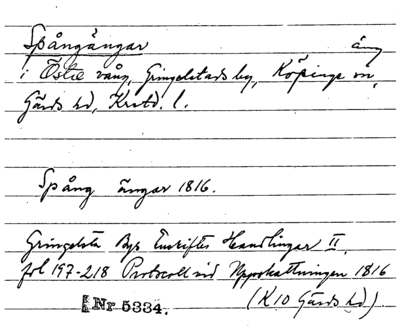 Spångängar äng
i Östre vång, Gringelstads by, Köpinge sn,
Gärds hd, Krstd. l.
Spång ängar 1816.
Gringelsta Bys Enskiftes Handlingar II,
fol 197-218 Protocoll vid Uppskattningen 1816
Nr 5334. (K10 Gärds hd).